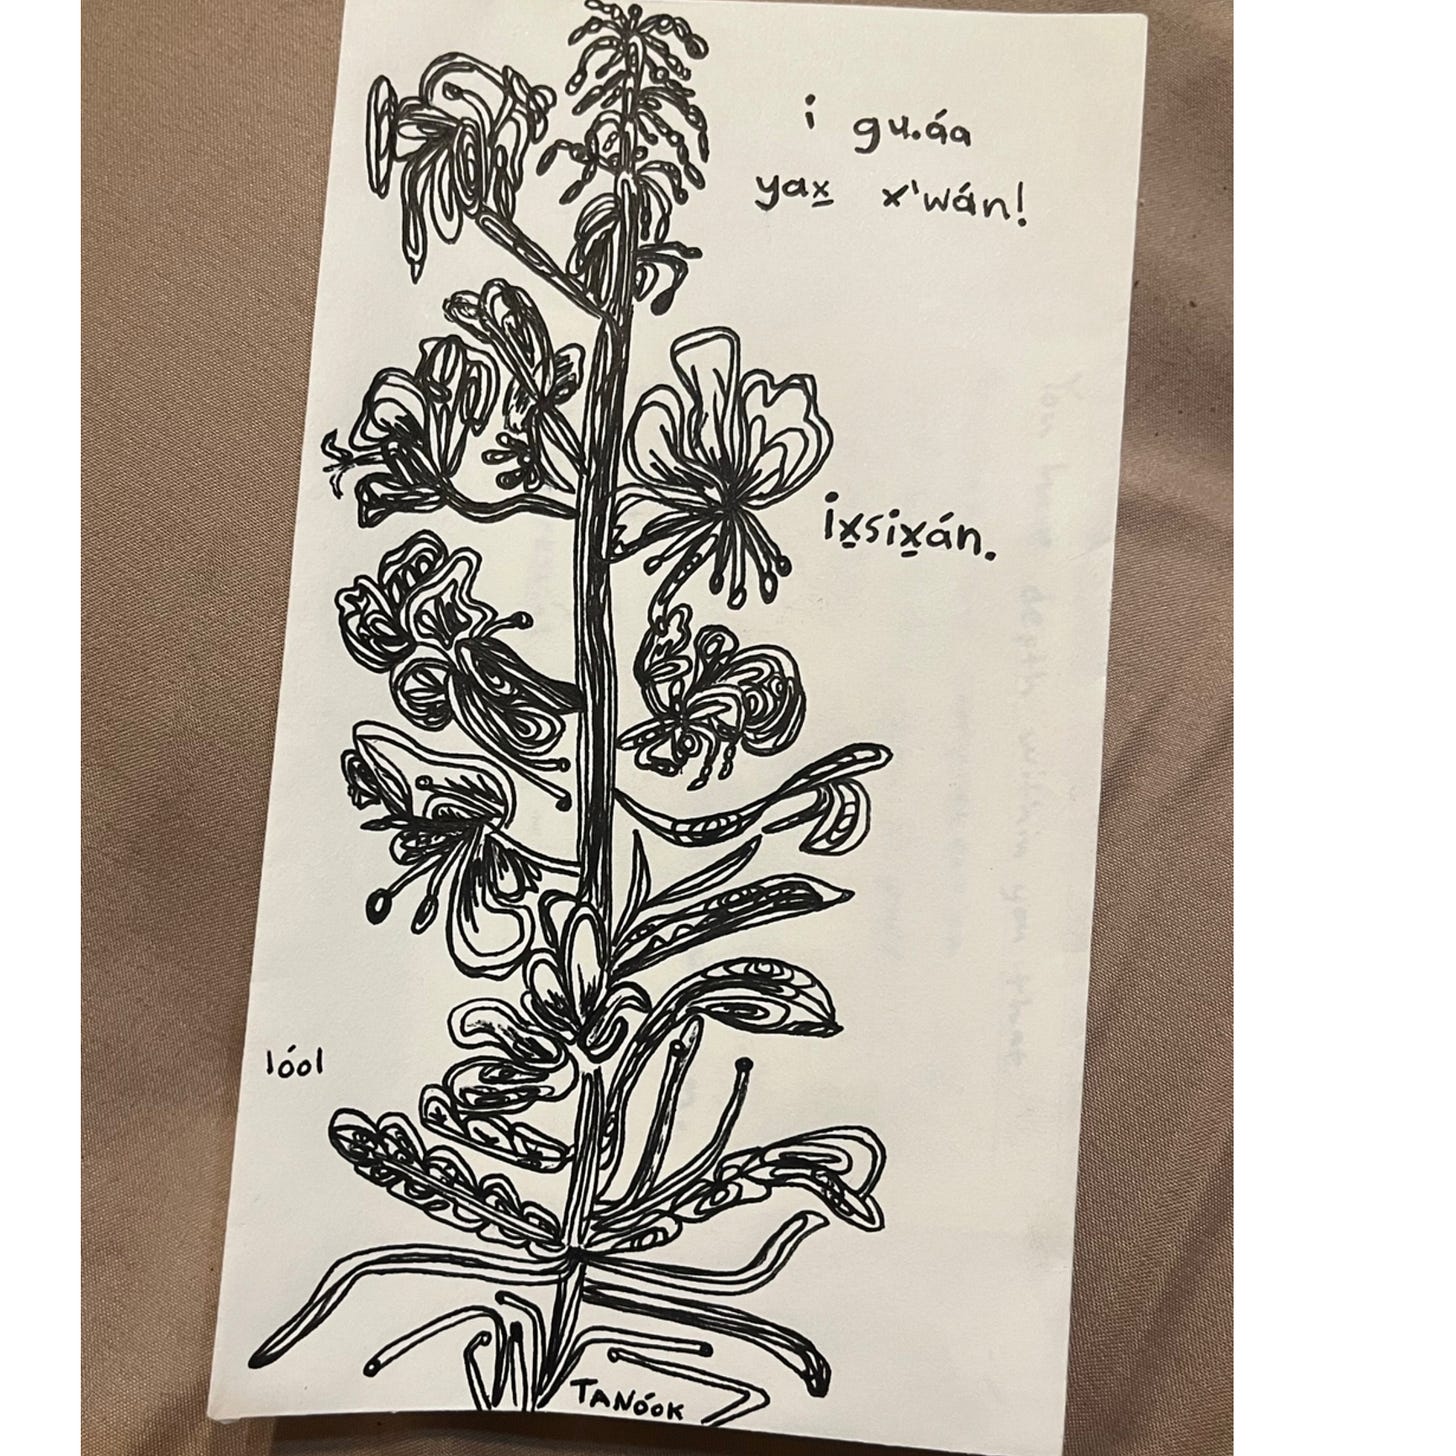 i gu.áa
yax̲ x'wán!
ix̲six̲án.
lóol
TANÓOK